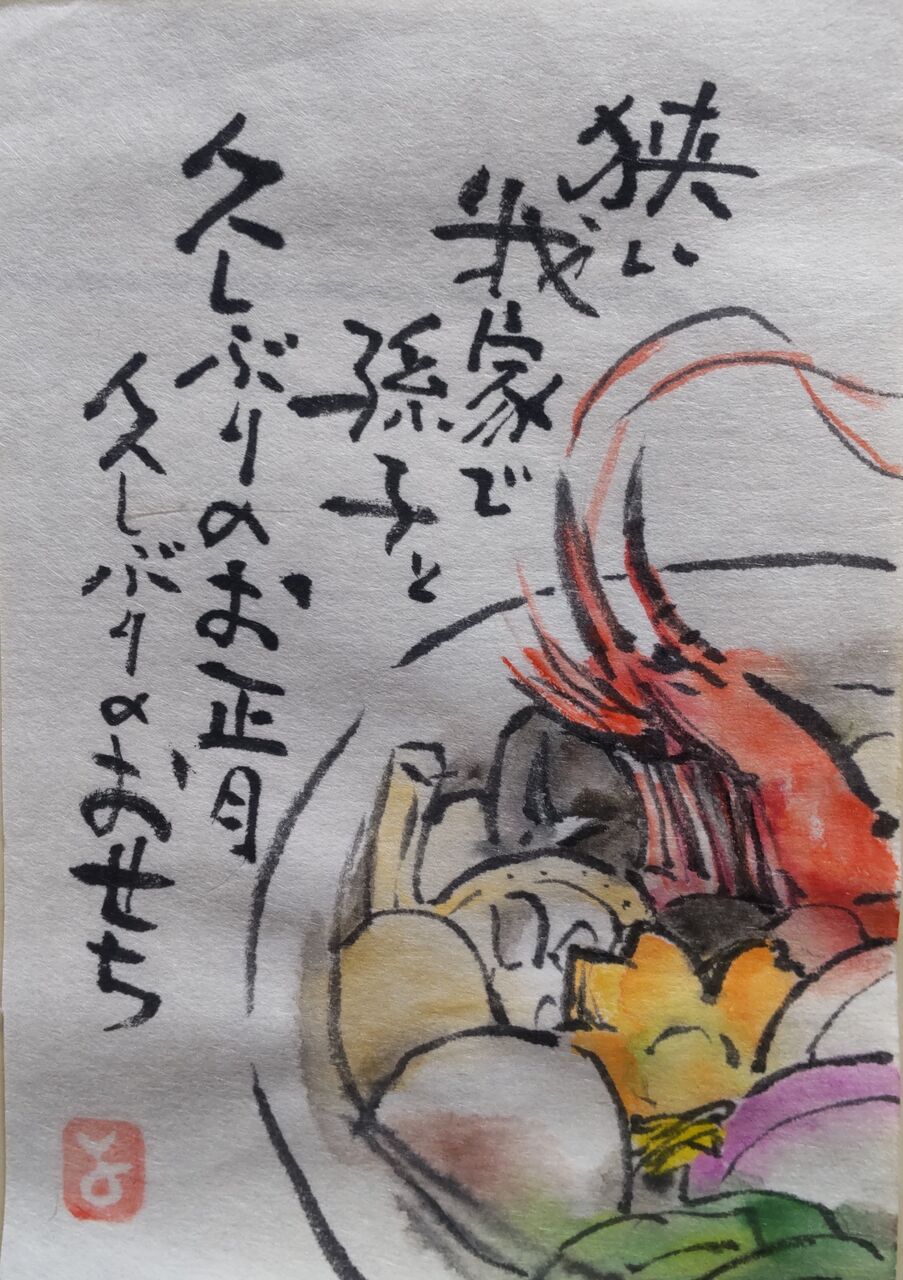 狭い
我家で
孫子と
久しぶりのお正月
久しぶりのおせち
と